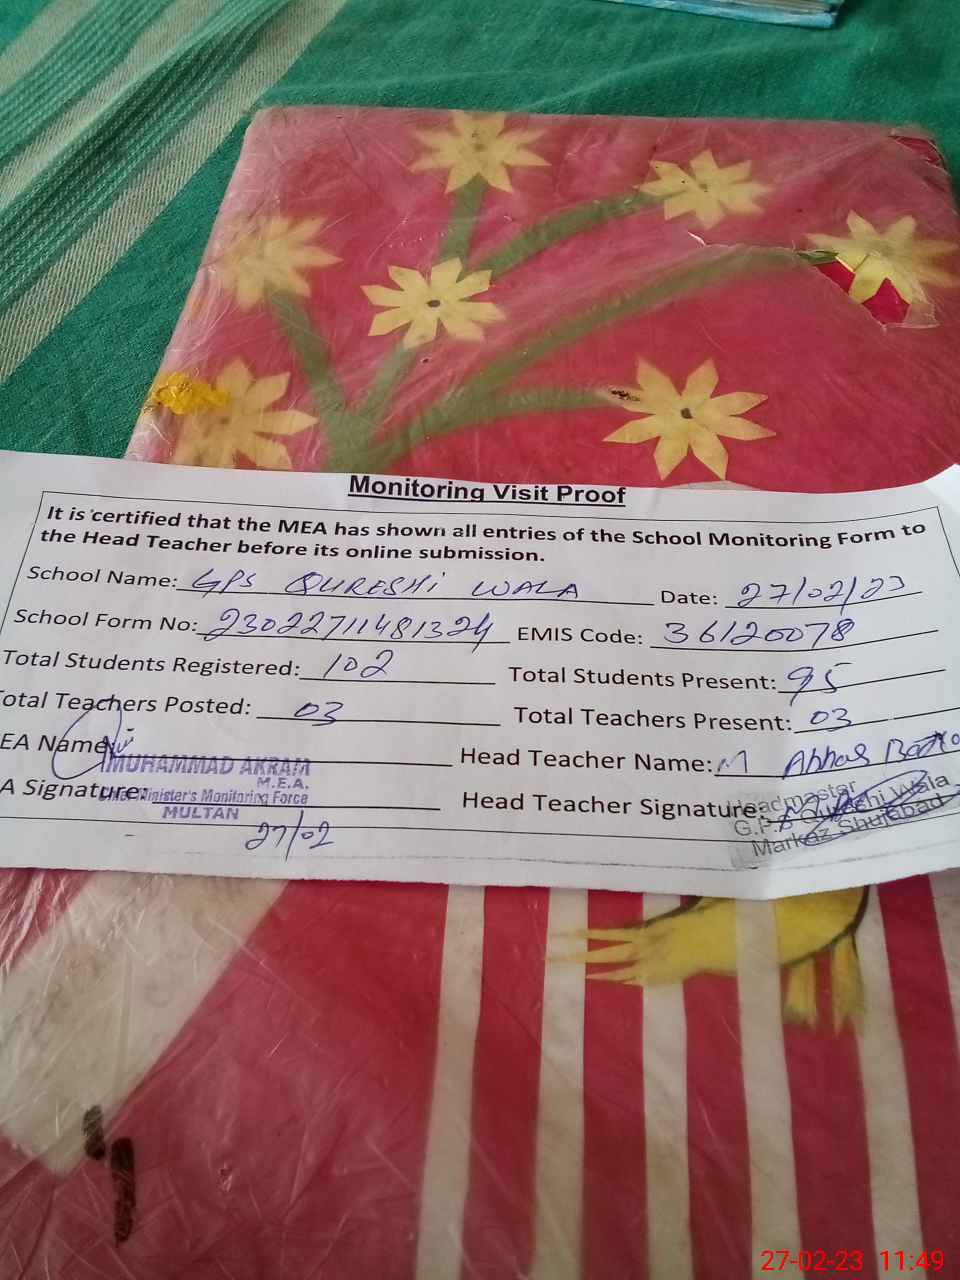 Monitoring Visit Proof
It is certified that the MEA has shown all entries of the School Monitoring Form to
the Head Teacher before its online submission.
School Name: GPS QURESHI WALA Date: 27/02/23
School Form No: 23022711481324 EMIS Code: 36120078
Total Students Registered: 102 Total Students Present: 95
otal Teachers Posted: 03 Total Teachers Present: 03
EA Name Head Teacher Name: M Abbas
MUHAMMAD AKRAM
M.E.A.
A Signature: Head Teacher Signature:
Chief Minister's Monitoring Force
MULTAN
27/02
Headmaster
G.P.S Qureshi Wala
Markaz Shujabad
27-02-23 11:49